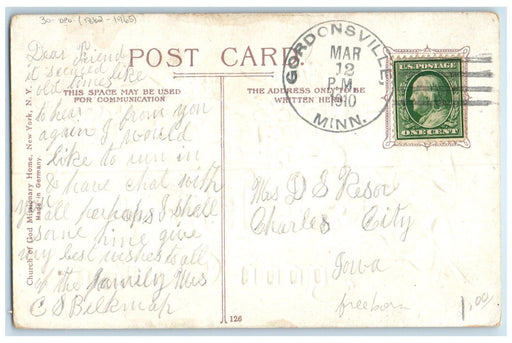 30- DPO (1862-1965)
POST CARD
THIS SPACE MAY BE USED
FOR COMMUNICATION
THE ADDRESS ONLY TO BE
WRITTEN HERE
Church of God Missionary Home, New York, N. Y.
Made in Germany.
Dear Friend
it seemed like
old times
to hear from you
again I would
like to run in
& have chat with
you all perhaps I shall
some time give
my best wishes to all
of the family Mrs
C S Belkmap
GORDONSVILLE,
MAR
12
P M
1910
MINN.
U.S. POSTAGE
ONE CENT
Mrs D S
Charles City
Iowa
freeborn
1.00
A 126